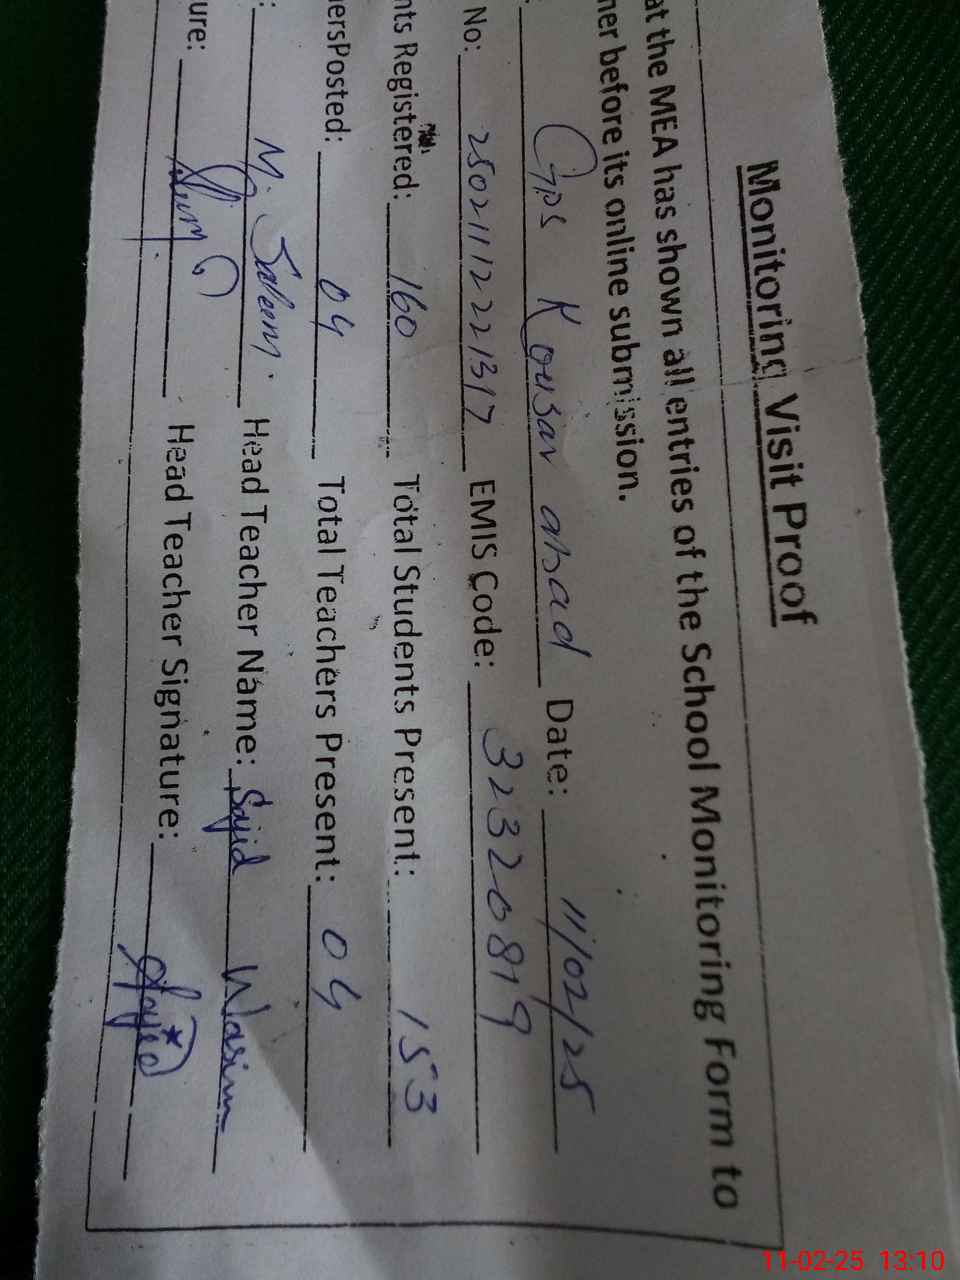 Monitoring Visit Proof
at the MEA has shown all entries of the School Monitoring Form to
her before its online submission.
: Gps Kousar abad Date: 11/02/25
No: 2502111221317 EMIS Code: 32320819
nts Registered: 160 Total Students Present: 153
hersPosted: 04 Total Teachers Present: 04
: M. Saleem. Head Teacher Name: Sajid Wasim
ure: Head Teacher Signature:
11-02-25 13:10